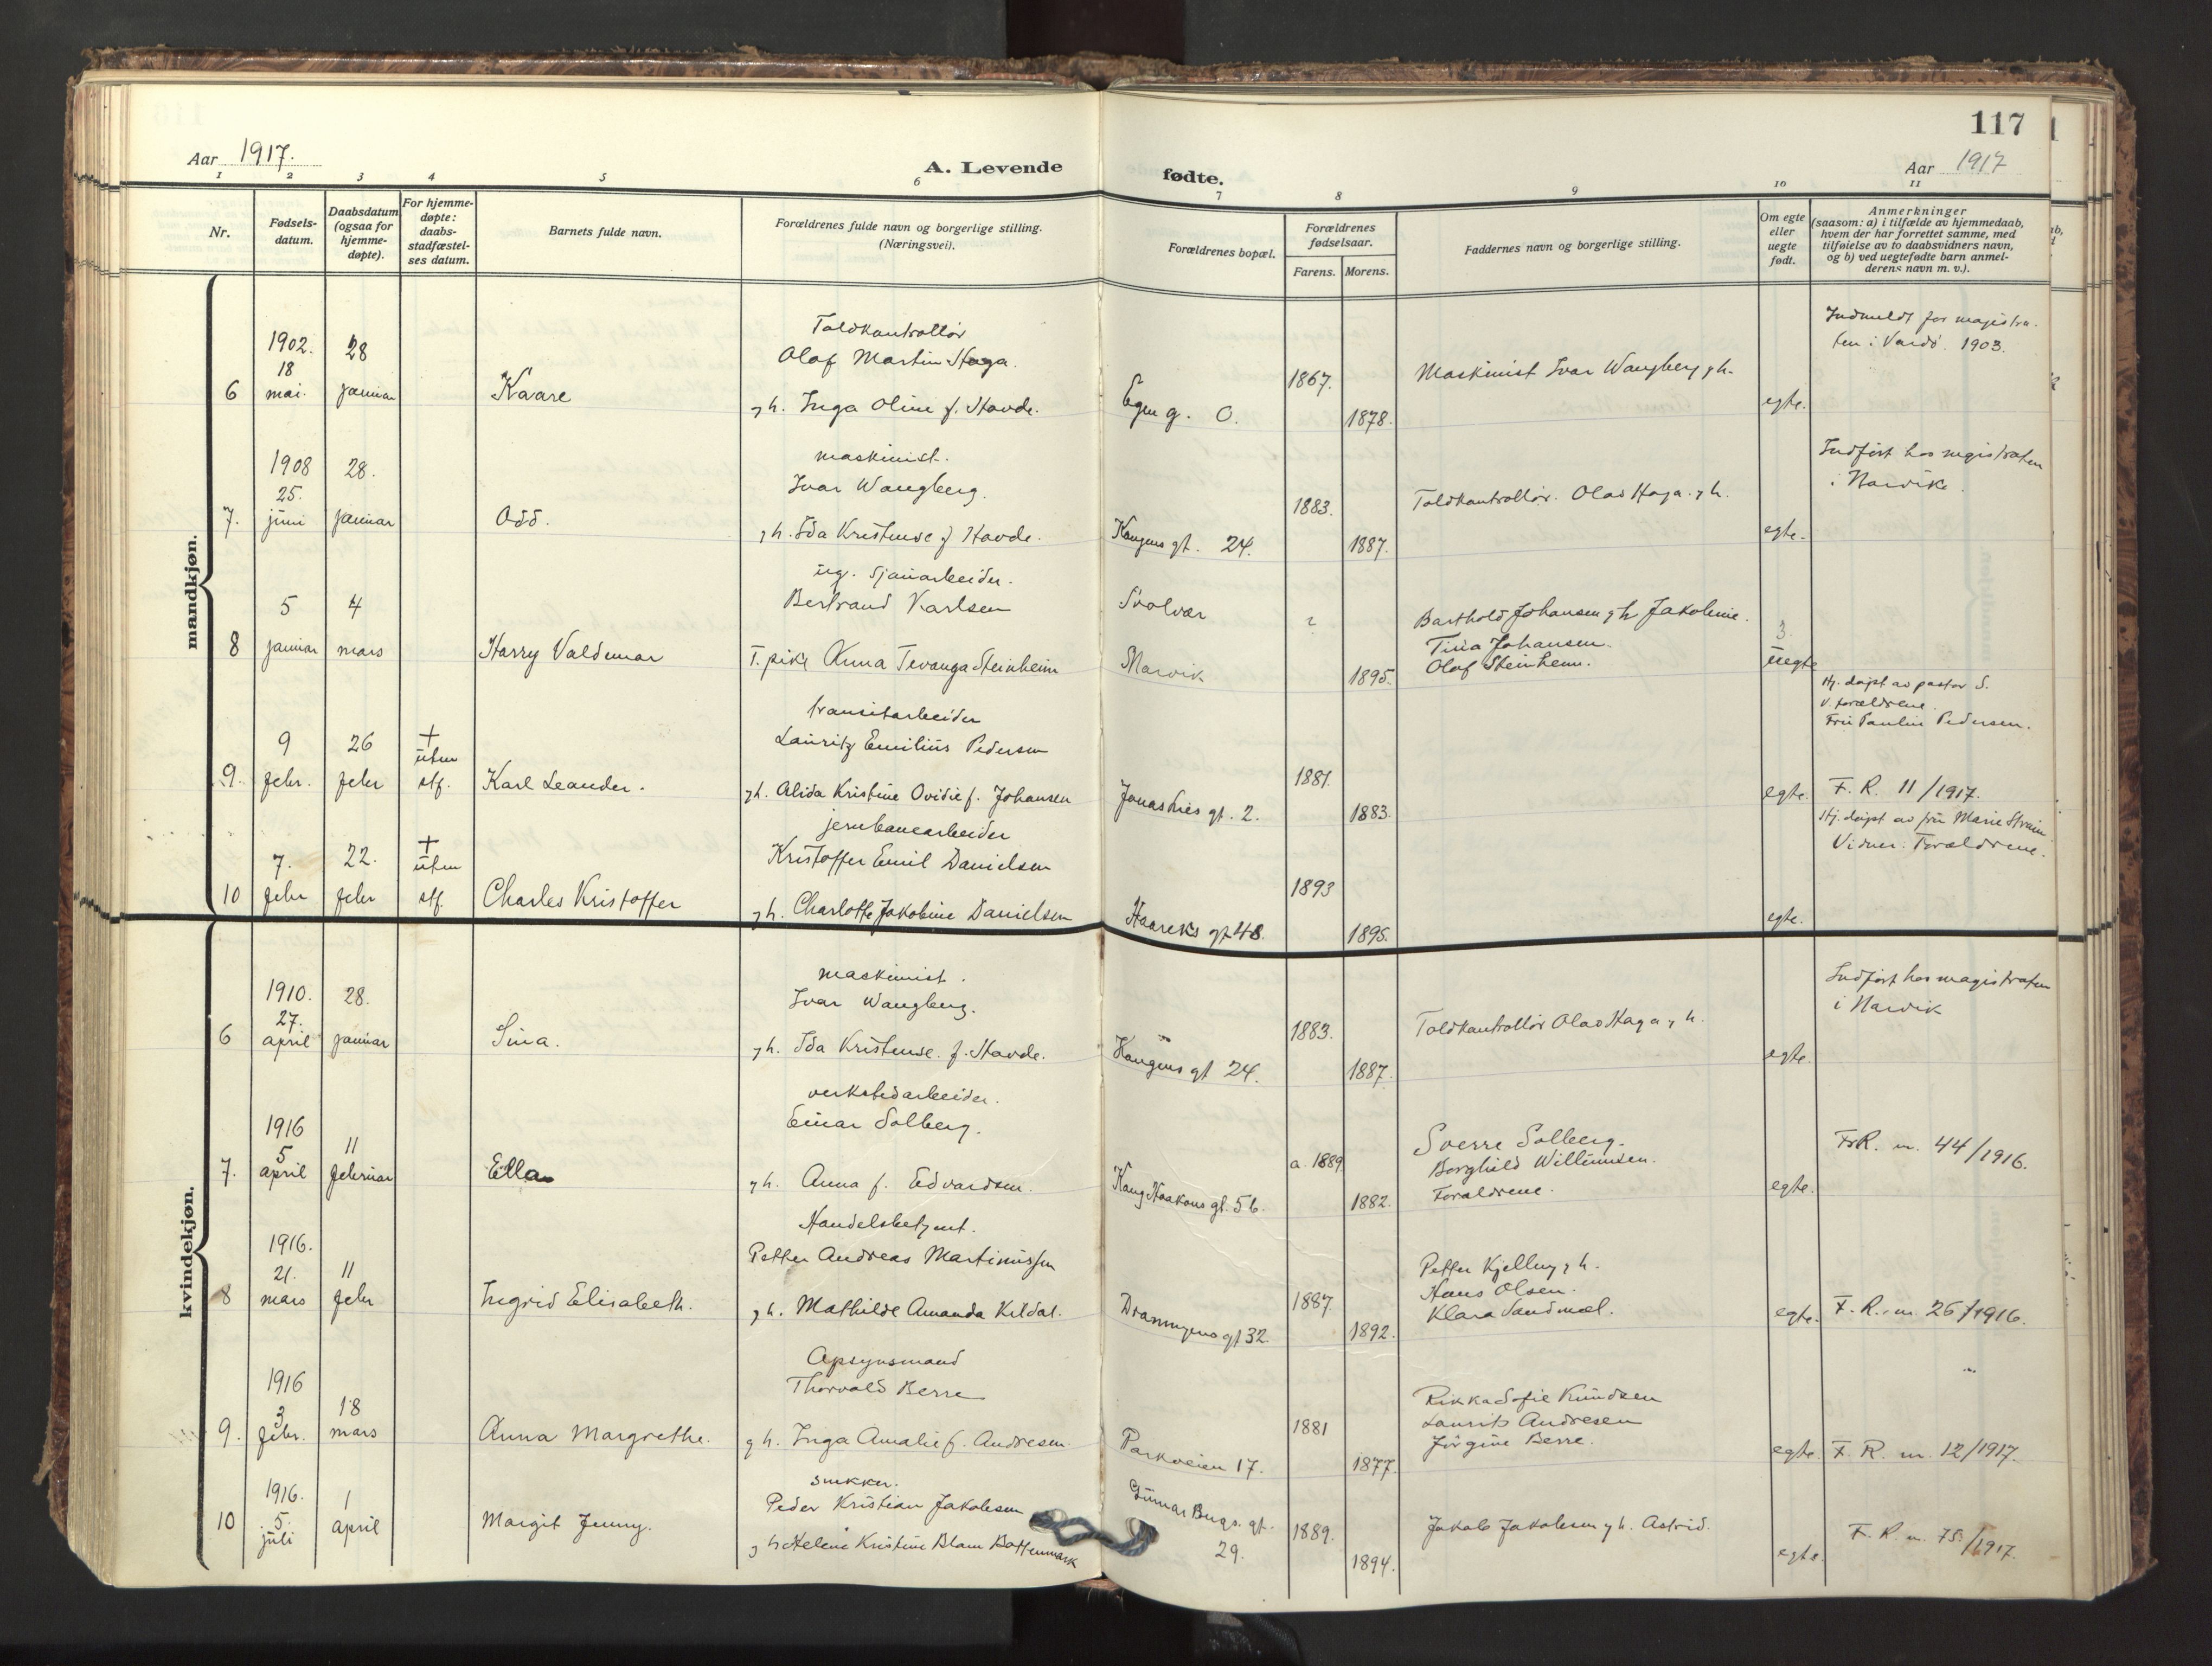 117
Aar 1917.
A. Levende
fødte.
Aar 1917
1 2 3 4 5 6 7 8 9 10 11
Nr.
Fødsels-
datum.
Daabsdatum
(ogsaa for
hjemme-
døpte).
For hjemme-
døpte:
daabs-
stadfæstel-
ses datum.
Barnets fulde navn.
Forældrenes fulde navn og borgerlige stilling.
(Næringsvei).
Forældrenes bopæl.
Forældrenes
fødselsaar.
Farens. Morens.
Faddernes navn og borgerlige stilling.
Om egte
eller
uegte
født.
Anmerkninger
(saasom: a) i tilfælde av hjemmedaab,
hvem der har forrettet samme, med
tilføielse av to daabsvidners navn,
og b) ved uegtefødte barn anmel-
derens navn m. v.).
mandkjøn.
6
1902.
18
mai.
28
januar
Kaare
Toldkontrollør
Olaf Martin Haga.
g h. Inga Oline f. Hovde.
Egen g. O.
1867.
1878.
Maskinist Ivar Wangberg g h.
egte.
Indmeldt for magistra-
ten i Vardö. 1903.
7.
1908
25.
juni
28.
januar
Odd.
maskinist.
Ivar Wangberg.
g h. Ida Kristense f Hovde.
Kongens gt. 24.
1883.
1887.
Toldkontrollør. Olav Haga. g h.
egte.
Indført hos magistraten
i Narvik.
8
5
januar
4
mars
Harry Valdemar
ug. sjauarbeider.
Bertrand Karlsen
T. pike Anna Tevanga Steinheim
Svolvær
Narvik
?
1895.
Barthold Johansen g h Jakobine.
Tina Johansen.
Olaf Steinheim.
3.
uegte
9.
9
febr.
26
febr
+
uten
stf.
Karl Leander.
transitarbeider
Lauritz Emilius Pedersen
g h. Alida Kristine Ovidie f. Johansen
Jonas Lies gt. 2.
1881.
1883.
egte.
Hj. døpt av pastor S.
V. forældrene.
Fru Paulin Pedersen.
F. R. 11/1917.
10
7.
febr
22.
febr
+
uten
stf.
Charles Kristoffer
jernbanearbeider
Kristoffer Emil Danielsen
g h. Charlotte Jakobine Danielsen
Haareks gt 48.
1893
1895.
egte.
Hj. døpt av fru Marie Strøm
Vidner: Forældrene.
kvindekjøn.
6
1910.
27.
april
28.
januar
Sina.
maskinist.
Ivar Wangberg.
g h. Ida Kristense. f. Hovde.
Kongens gt 24.
1883.
1887.
Toldkontrollør Olav Haga g h.
egte.
Indført hos magistraten
i Narvik
7.
1916
5
april
11
februar
Ella
verkstedarbeider.
Einar Solberg.
g h. Anna f. Edvardsen.
Kong Haakons gt. 56.
a. 1889
1882.
Sverre Solberg.
Borghild Willumsen.
Forældrene.
egte.
F.R. nr. 44/1916.
8
1916.
21.
mars
11
febr
Ingrid Elisabeth.
Handelsbetjent.
Petter Andreas Martinussen
g h. Mathilde Amanda Kildal.
Dronningens gt 32.
1887.
1892.
Petter Kjelling g h.
Hans Olsen.
Klara Sandmæl.
egte.
F. R. nr. 26/1916.
9.
1916
3
febr.
18
mars
Anna Margrethe.
Opsynsmand
Thorvald Berre
g h. Inga Amalie f. Andresen
Parkveien 17.
1881
1877.
Rikka Sofie Knudsen
Laurits Andresen
Jørgine Berre.
egte.
F. R. nr. 12/1917.
10
1916.
5.
juli
1
april
Margit Jenny.
snekker.
Peder Kristian Jakobsen
g h Helene Kristine Blam Bottenmark
Gunnar Bergs. gt.
29.
1889.
1894.
Jakob Jakobsen g h. Astrid.
egte.
F. R. nr. 75./1917.